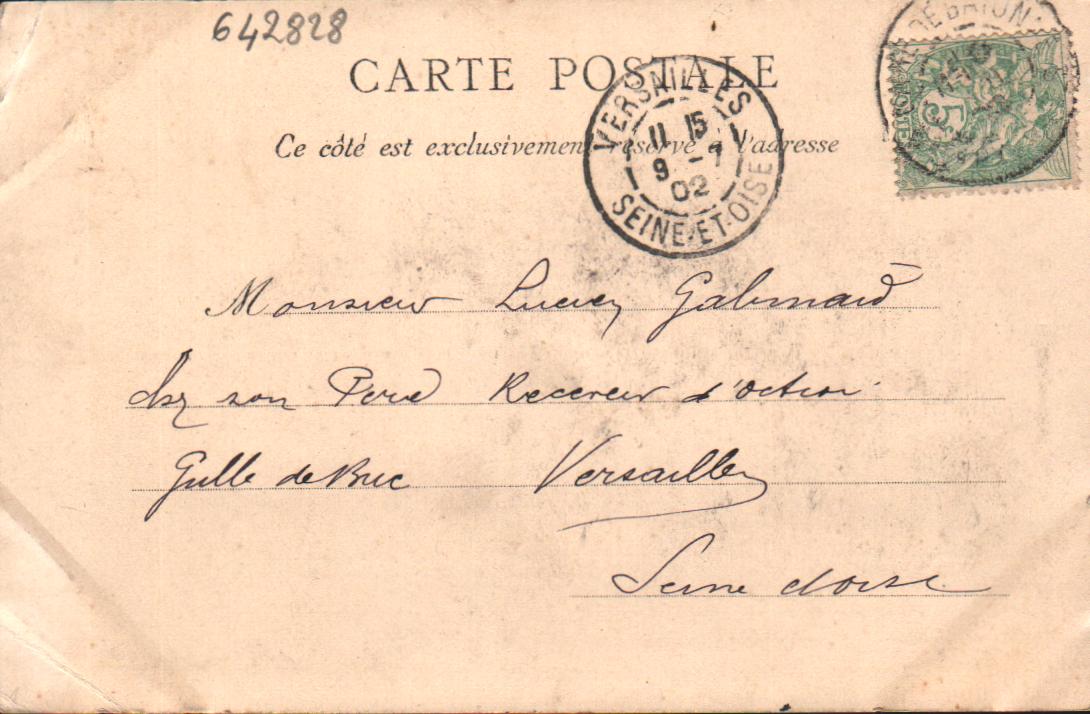 642828
CARTE POSTALE
Ce côté est exclusivement réservé à l'adresse
VERSAILLES
11 15
9 -1
02
SEINE-ET-OISE
DE BRION
5
Monsieur Lucien
chez son Père Receveur d'octroi
Grille de Buc Versailles
Seine et oise